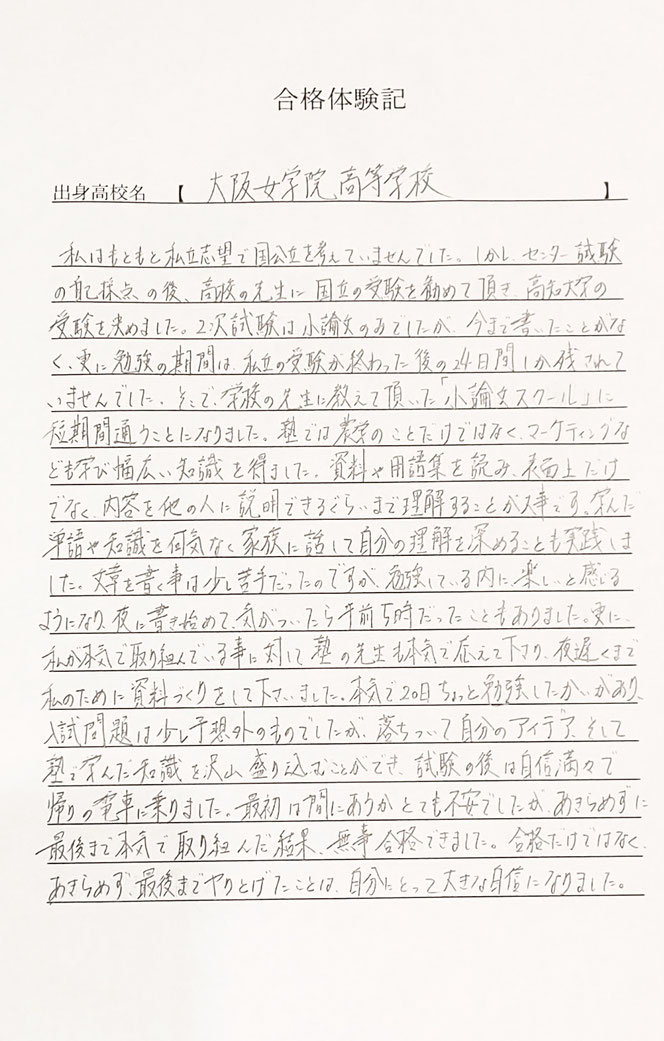 合格体験記
出身高校名 【 大阪女学院高等学校 】
私はもともと私立志望で国公立を考えていませんでした。しかし、センター試験
の自己採点の後、高校の先生に国立の受験を勧めて頂き、高知大学の
受験を決めました。2次試験は小論文のみでしたが、今まで書いたことがな
く、更に勉強の期間は、私立の受験が終わった後の24日間しか残されて
いませんでした。そこで、学校の先生に教えて頂いた「小論文スクール」に
短期間通うことになりました。塾では農学のことだけではなく、マーケティングな
ども学び幅広い知識を得ました。資料や用語集を読み、表面上だけ
でなく、内容を他の人に説明できるぐらいまで理解することが大事です。学んだ
単語や知識を何気なく家族に話して自分の理解を深めることも実践しま
した。文章を書く事は少し苦手だったのですが、勉強している内に楽しいと感じる
ようになり、夜に書き始めて、気がついたら午前5時だったこともありました。更に、
私が本気で取り組んでいる事に対して塾の先生も本気で応えて下さり、夜遅くまで
私のために資料づくりをして下さいました。本気で20日ちょっと勉強したかいがあり、
入試問題は少し予想外のものでしたが、落ちついて自分のアイデア、そして
塾で学んだ知識を沢山盛り込むことができ、試験の後は自信満々で
帰りの電車に乗りました。最初は間にあうかとても不安でしたが、あきらめずに
最後まで本気で取り組んだ結果、無事合格できました。合格だけではなく、
あきらめず、最後までやりとげたことは、自分にとって大きな自信になりました。